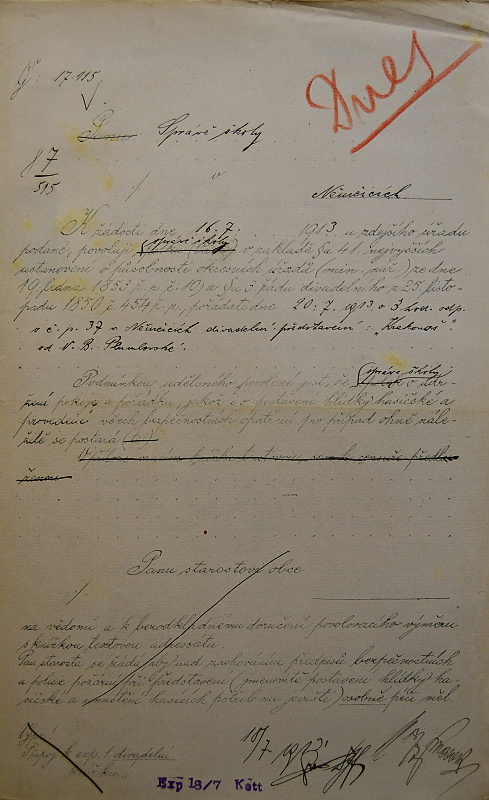 Dnes
Čj: 17.115
Panu Správě školy
§ 7
515
Němčicích
K žádosti dne 16.7. 1913 u zdejšího úřadu
podané, povoluji správě školy v základě §u 41. nejvyšších
ustanovení o působnosti okresních úřadů (min. nař.) ze dne
19. ledna 1853 ř. z. č. 10) a §u 3 řádu divadelního z 25. listo-
padu 1850 č. 454 ř. z., pořádati dne 20.7.1913 o 3 hod. odp.
v č. p. 37 v Němčicích divadelní představení: „Krakonoš"
od V. B. Plumlovské.
Podmínkou uděleného povolení jest, že správa školy o udr-
žení pokoje a pořádku, jakož i o postavení hlídky hasičské a
provedení všech bezpečnostních opatření pro případ ohně nále-
žitě se postará
Panu starostovi obce
na vědomí a k bezodkladnému doručení povolovacího výměru
s knížkou textovou adresátu.
Pan starosta se žádá, aby nad zachováním předpisů bezpečnostních
a policie požární při představení (jmenovitě postavení hlídky ha-
sičské a umístění hasicích potřeb na jevišti) osobně péči měl.
Připoj k exp. 1 divadelní
knížku
18/7 1913
Exp 18/7 Kött